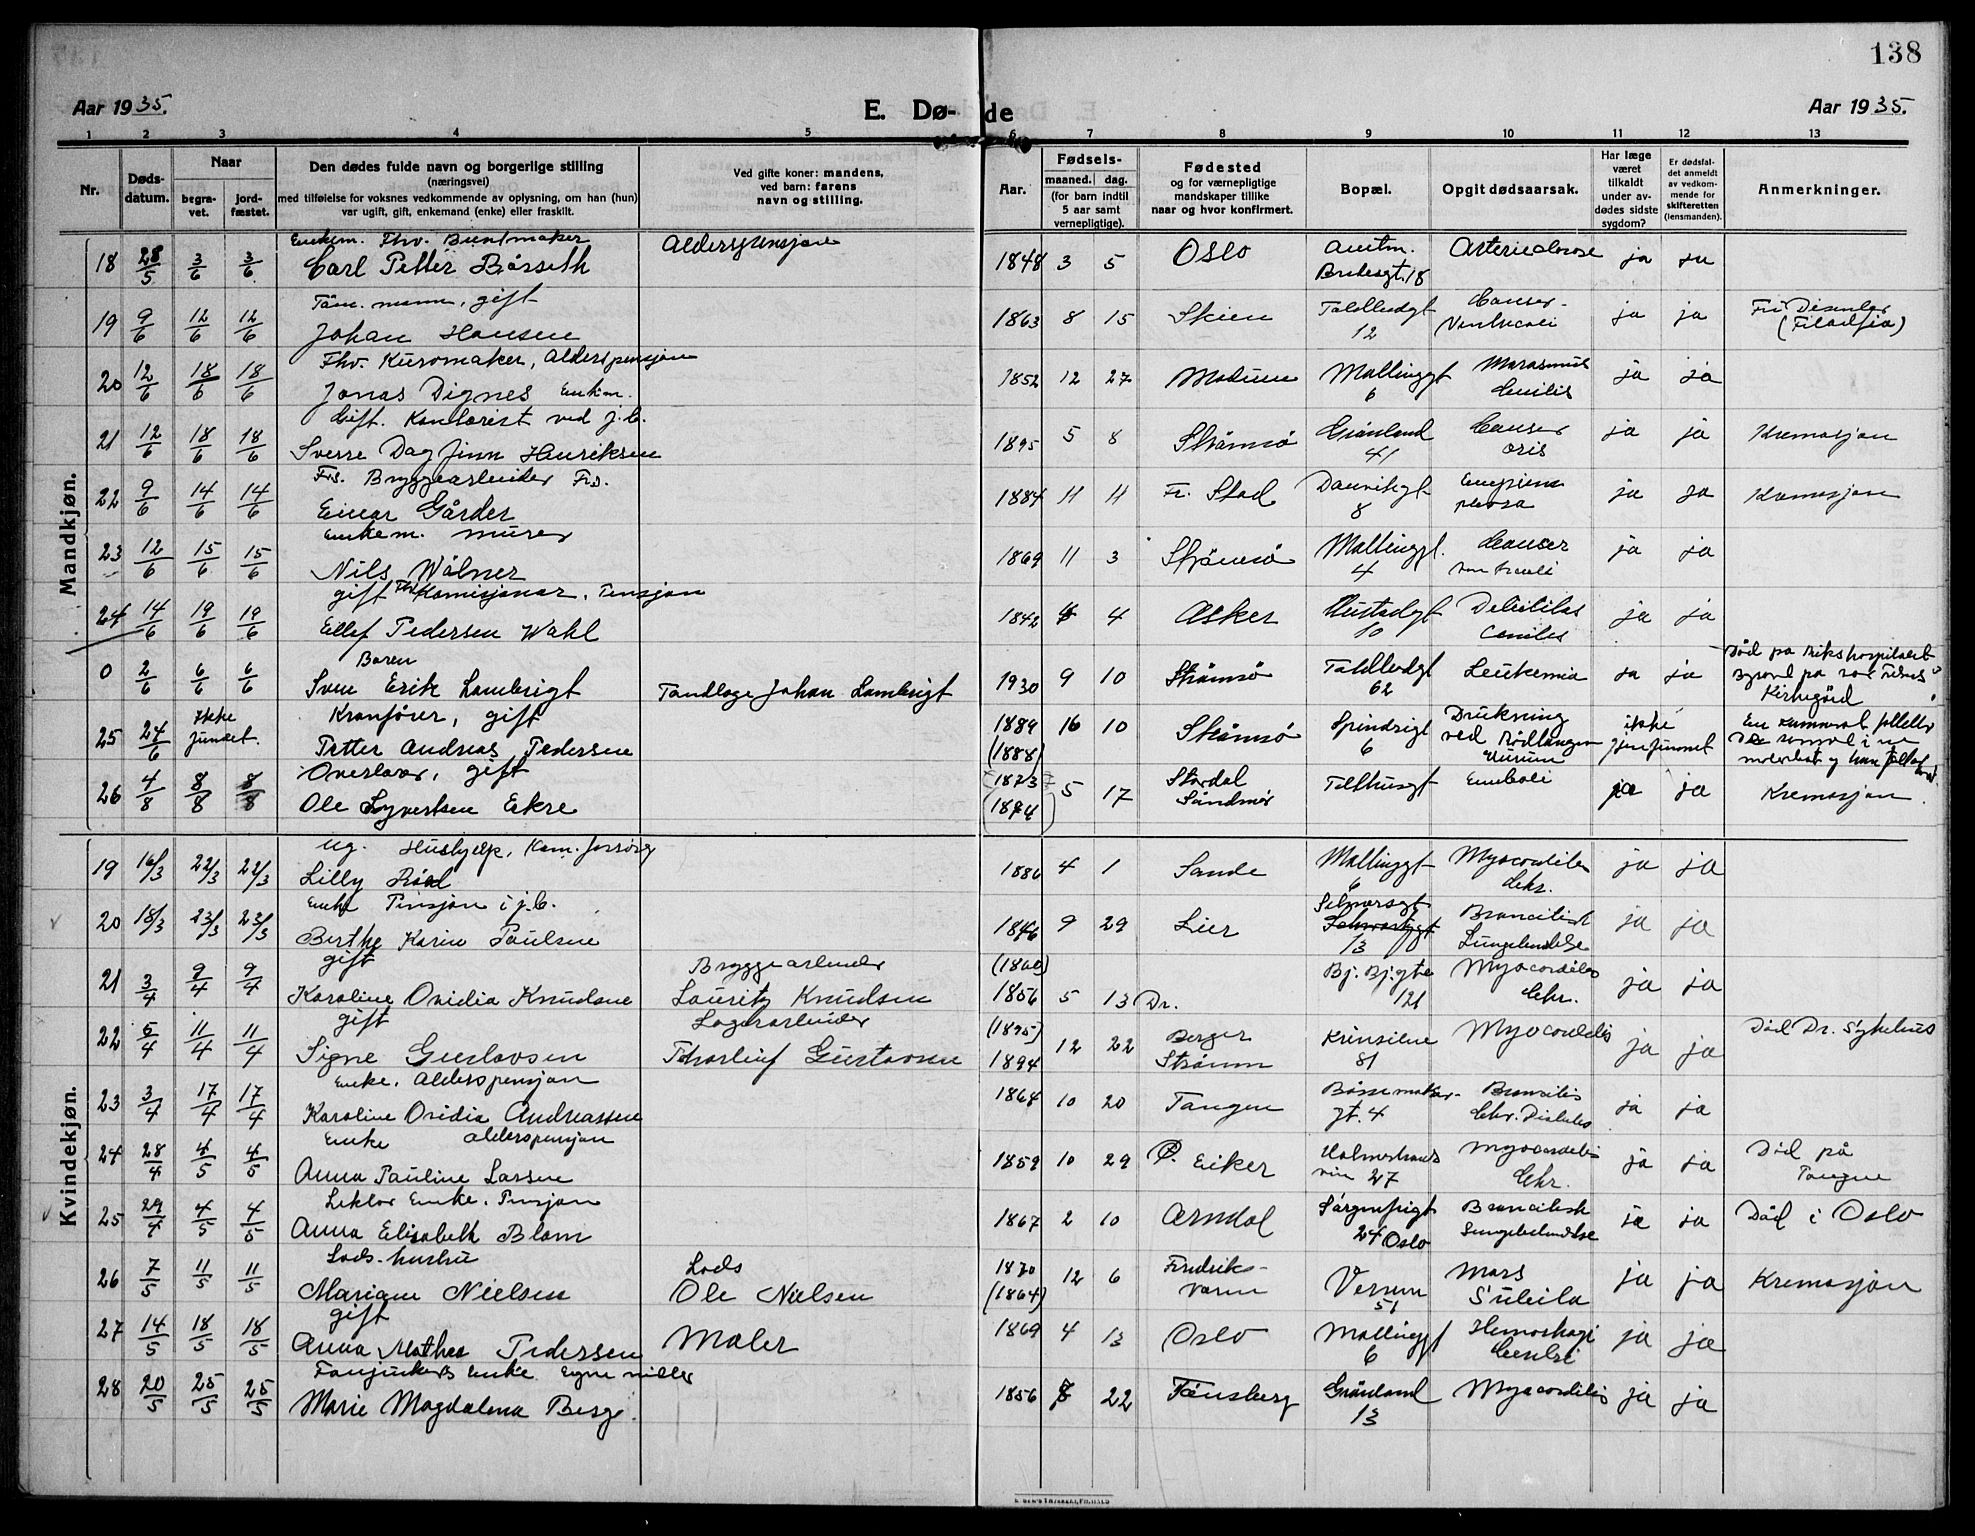 138
Aar 1935.
E. Dø-
de
Aar 1935.
1 2 3 4 5 6 7 8 9 10 11 12 13
Nr.
Døds-
datum.
Naar
begra-
vet.
jord-
fæstet.
Den dødes fulde navn og borgerlige stilling
(næringsvei)
med tilføielse for voksnes vedkommende av oplysning, om han (hun)
var ugift, gift, enkemand (enke) eller fraskilt.
Ved gifte koner: mandens,
ved barn: farens
navn og stilling.
Aar.
Fødsels-
maaned. dag.
(for barn indtil
5 aar samt
vernepligtige).
Fødested
og for værnepligtige
mandskaper tillike
naar og hvor konfirmert.
Bopæl.
Opgit dødsaarsak.
Har læge
været
tilkaldt
under av-
dødes sidste
sygdom?
Er dødsfal-
det anmeldt
av vedkom-
mende for
skifteretten
(lensmanden).
Anmerkninger.
Mandkjøn.
Enkem. Fhv. Buntmaker Alderspensjon
18 28/5 3/6 3/6 Carl Petter Børseth 1848 3 5 Oslo Bredesgt. 18 ja ja
Tøm. mann, gift
19 9/6 12/6 12/6 Johan Hansen 1863 8 15 Skien 12 Cancer Ventriculi ja ja Fri Disenter (Filadelfia)
Fhv. Kuromaker, Alderspensjon
20 12/6 18/6 18/6 Jonas Dignes Enkem. 1852 12 27 Modum Mallinggt 6 Marasmus senilis ja ja
Gift. Kontorist ved j.b.
21 12/6 18/6 18/6 Sverre Dagfinn Henriksen 1895 5 8 Strømsø Grønland 41 Cancer oris ja ja Kremasjon
Frs. Bryggearbeider Frs.
22 9/6 14/6 14/6 Einar Gårder 1884 11 11 Fr. Stad Danvikgt 8 ja ja Kremasjon
Enkem. murer
23 12/6 15/6 15/6 Nils Wålner 1869 11 3 Strømsø Mallinggt. 4 Cancer ventriculi ja ja
gift Fhv Komisjonær, Pensjon
24 14/6 19/6 19/6 Ellef Pedersen Wahl 1842 4 Asker 10 Debilitas senilis ja ja
Baren
0 2/6 6/6 6/6 Sven Erik Lambrigt Tandlæge Johan Lambrigt 1930 9 10 Strømsø 62 Leukemia ja ja Død på Rikshospitalet
Kirkegård
Kranfører, gift
25 24/6 Ikke funnet. Petter Andreas Pedersen 1889 (1888) 16 10 Strømsø 6 Drukning ved Rødtangen ikke gjenfunnet
26 4/8 8/8 8/8 gift
Ole Syvertsen Eikre 1873 (1874) 5 17 Stordal Sundmør Tolthusgt Emboli ja ja Kremasjon.
Kvindekjøn.
ug. Hushjelp, Kom. forsørg
19 16/3 22/3 22/3 Lilly Röed 1886 4 1 Sande Mallinggt 6 Myocarditis Chr. ja ja
Enke Pensjon i j.b.
20 18/3 23/3 23/3 Berthe Karin Paulsen 1846 9 29 Lier Selmersgt 13 Broncitisk Lungebetendelse ja ja
gift Bryggearbeider
21 3/4 9/4 9/4 Karoline Ovidia Knudsen Lauritz Knudsen (1860) 1856 5 13 Dr. Bj. Bj.gte 121 Myocarditis Chr. ja ja
gift Lagerarbeider
22 5/4 11/4 11/4 Signe Gustavsen Thorleif Gustavsen (1895) 1894 12 22 Berger Strømm 81 Myocarditis ja ja Død Dr. Sykehus
Enke. Alderspensjon
23 3/4 17/4 17/4 Karoline Ovidia Andreassen 1864 10 20 Tangen Børsemaker-gt. 4 Broncitis Chr. Diabetes ja ja
Enke alderspensjon
24 28/4 4/5 4/5 Anna Pauline Larsen 1859 10 29 Ø. Eiker 27 Myocarditis Chr. ja ja Død på Tangen
Lektor Enke. Pensjon
25 29/4 4/5 4/5 Anna Elisabeth Blom 1867 2 10 Arndal Sørgenfrigt 24 Oslo Broncitisk Lungebetendelse ja ja Død i Oslo
Lods-hustru Lods
26 7/5 11/5 11/5 Mariane Nielsen Ole Nielsen 1870 (1864) 12 6 Fredriks-værn Verven 51 Mors Subita ja ja Kremasjon
gift
27 14/5 18/5 18/5 Anna Mathea Pedersen Maler 1869 4 13 Oslo Mallinggt 6 Hemorhagi Cerebri ja ja
Fanejunkers Enke Egne midler
28 20/5 25/5 25/5 Marie Magdalena Berge. 1856 22 Tønsberg Grønland 13 Myocarditis ja ja